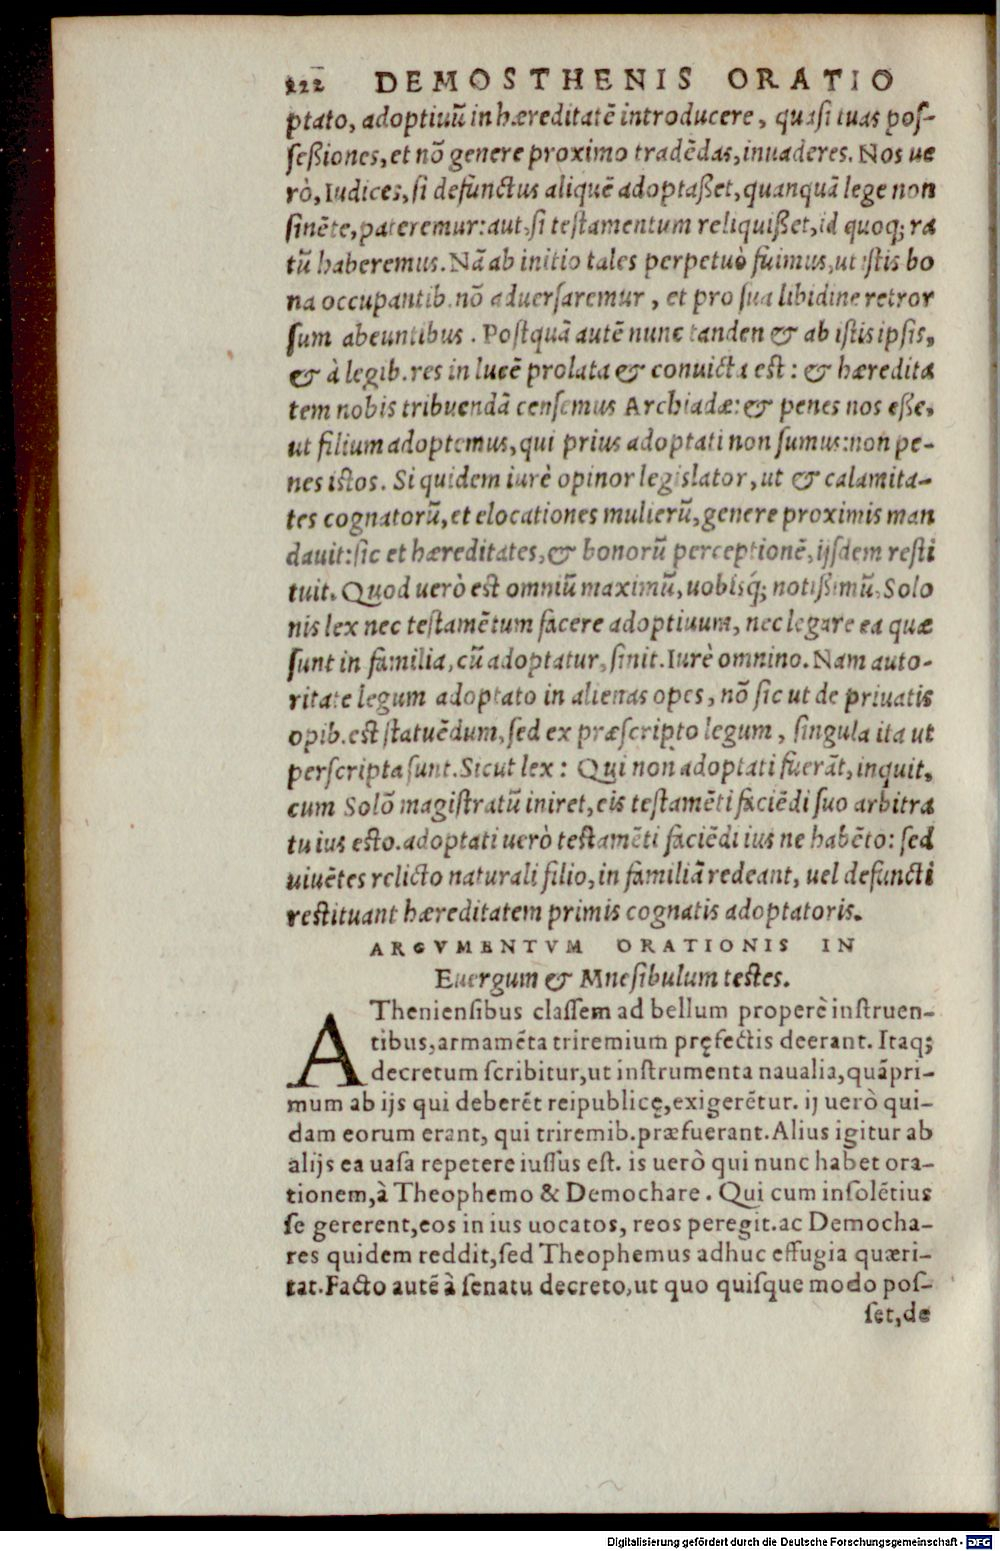 222 DEMOSTHENIS ORATIO
ptato, adoptiuū in hæreditatē introducere, quasi tuas pos-
seßiones, et nō genere proximo tradēdas, inuaderes. Nos ue
rò, Iudices, si defunctus aliquē adoptaßet, quanquā lege non
sinēte, pateremur: aut, si testamentum reliquißet, id quoq; ra
tū haberemus. Nā ab initio tales perpetuò fuimus, ut istis bo
na occupantib. nō aduersaremur, et pro sua libidine retror
sum abeuntibus. Postquā autē nunc tanden & ab istis ipsis,
& à legib. res in lucē prolata & conuicta est: & hæredita
tem nobis tribuendā censemus Archiadæ: & penes nos eße,
ut filium adoptemus, qui prius adoptati non sumus: non pe-
nes istos. Siquidem iurè opinor legislator, ut & calamita-
tes cognatorū, et elocationes mulierū, genere proximis man
dauit: sic et hæreditates, & bonorū perceptionē, ijsdem resti
tuit. Quod uerò est omniū maximū, uobisq́; notißimū, Solo
nis lex nec testamētum facere adoptiuum, nec legare ea quæ
sunt in familia, cū adoptatur, sinit. Iurè omnino. Nam auto-
ritate legum adoptato in alienas opes, nō sic ut de priuatis
opib. est statuēdum, sed ex præscripto legum, singula ita ut
perscripta sunt. Sicut lex: Qui non adoptati fuerāt, inquit,
cum Solō magistratū iniret, eis testamēti faciēdi suo arbitra
tu ius esto. adoptati uerò testamēti faciēdi ius ne habēto: sed
uiuētes relicto naturali filio, in familiā redeant, uel defuncti
restituant hæreditatem primis cognatis adoptatoris.
ARGVMENTVM ORATIONIS IN
Euergum & Mnesibulum testes.
ATheniensibus classem ad bellum properè instruen-
tibus, armamēta triremium pręfectis deerant. Itaq;
decretum scribitur, ut instrumenta naualia, quāpri-
mum ab ijs qui deberēt reipublicę, exigerētur. ij uerò qui-
dam eorum erant, qui triremib. præfuerant. Alius igitur ab
alijs ea uasa repetere iussus est. is uerò qui nunc habet ora-
tionem, à Theophemo & Demochare. Qui cum insolētius
se gererent, eos in ius uocatos, reos peregit. ac Democha-
res quidem reddit, sed Theophemus adhuc effugia quæri-
tat. Facto autē à senatu decreto, ut quo quisque modo pos-
set, de
Digitalisierung gefördert durch die Deutsche Forschungsgemeinschaft - DFG